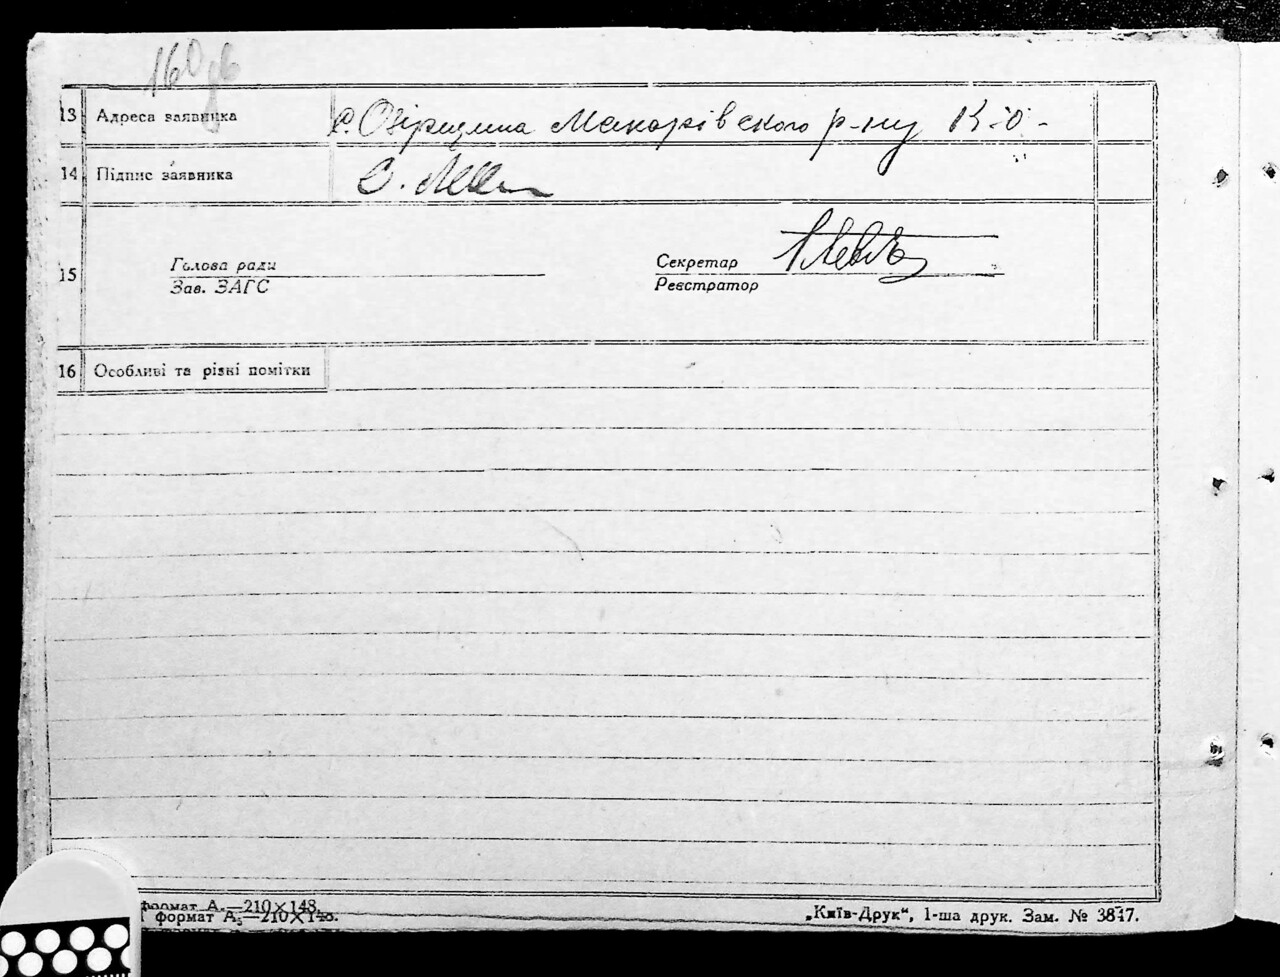 160 зв
13 Адреса заявника с. Озірщина Макарівского р-ну К-о-
14 Підпис заявника
15 Голова ради Секретар
Зав. ЗАГС Реєстратор
16 Особливі та різні помітки
формат А₅—210×148.
формат А₅—210×148. „Київ-Друк“, 1-ша друк. Зам. № 3847.